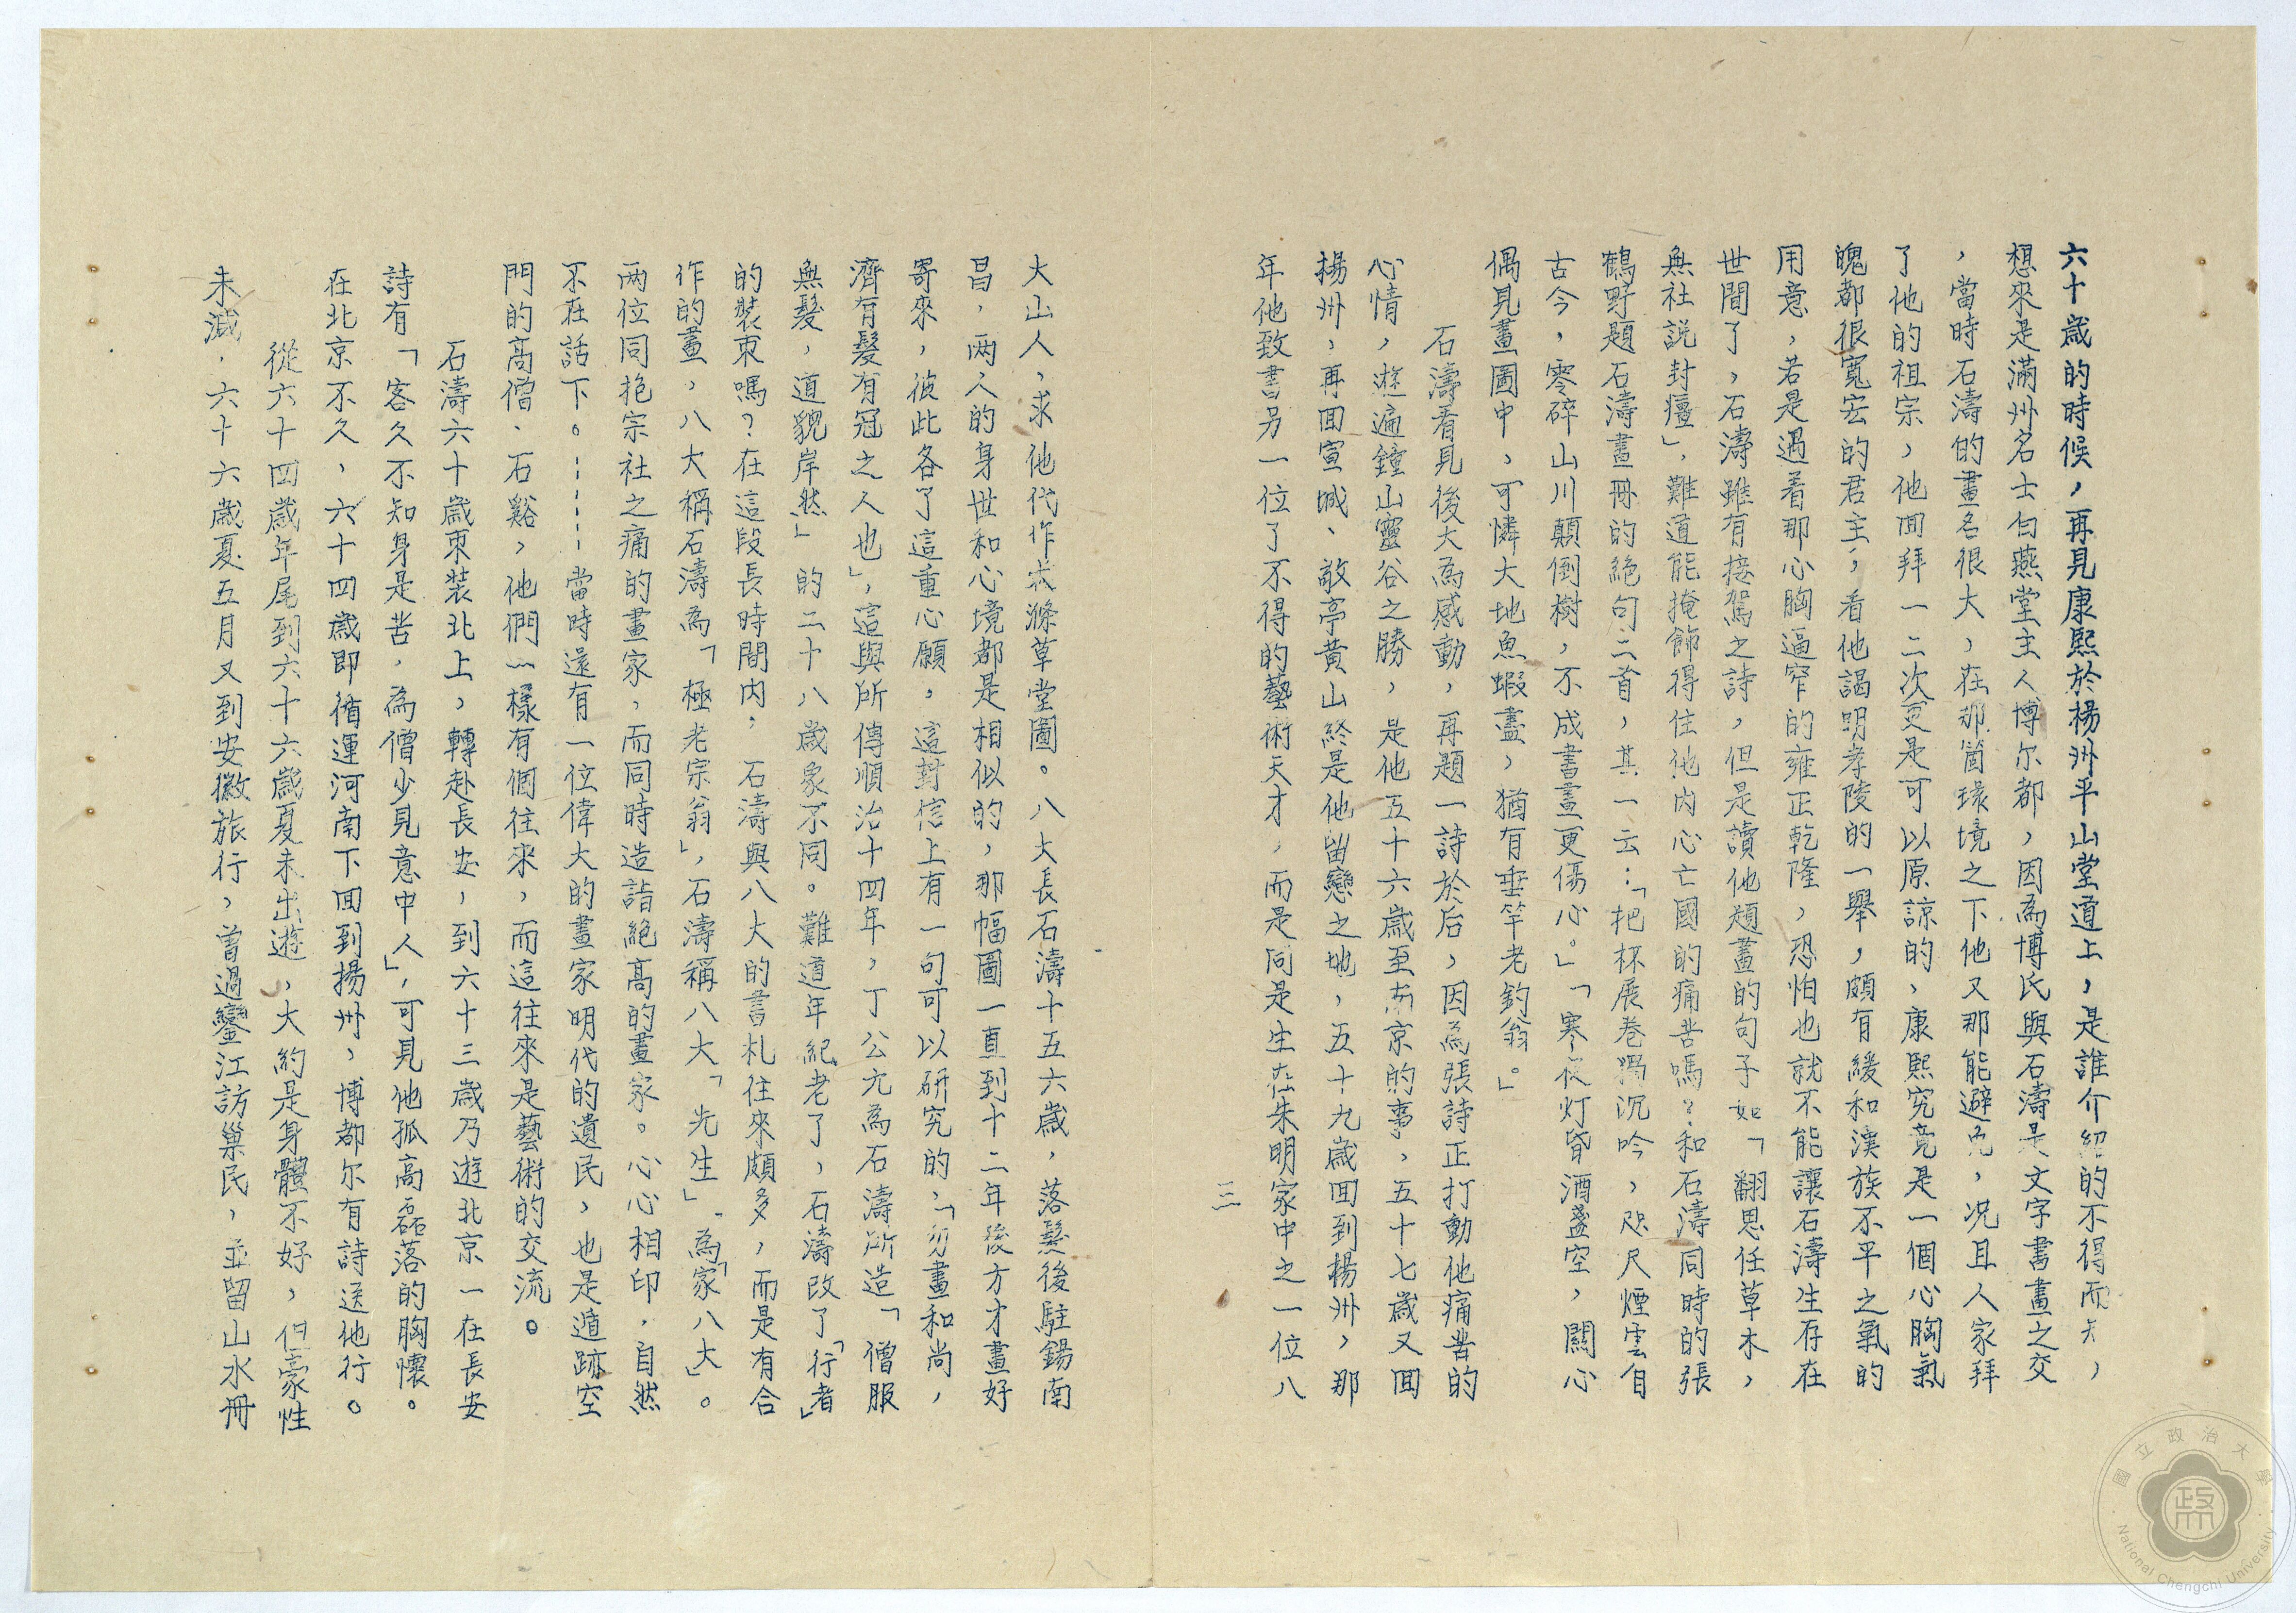 六十歲的時候，再見康熙於楊州平山堂道上，是誰介紹的不得而知，
想來是滿州名士白燕堂主人博尔都，因為博氏與石濤是文字書畫之交
，當時石濤的畫名很大，在那箇環境之下他又那能避免，况且人家拜
了他的祖宗，他回拜一二次更是可以原諒的，康熙究竟是一個心胸氣
魄都很寬宏的君主；看他謁明孝陵的一舉，頗有緩和漢族不平之氣的
用意，若是遇着那心胸逼窄的雍正乾隆，恐怕也就不能讓石濤生存在
世間了，石濤雖有接駕之詩，但是讀他題畫的句子如「翻思任草木，
無社説封疆」，難道能掩飾得住他内心亡國的痛苦嗎？和石濤同時的張
鶴野題石濤畫冊的絕句二首，其一云：「把杯展卷獨沉吟，咫尺煙雲自
古今，零碎山川顛倒樹，不成書畫更傷心。」「寒夜灯昏酒盞空，關心
偶見畫圖中，可憐大地魚蝦盡，猶有垂竿老釣翁。」
石濤看見後大為感動，再題一詩於后，因為張詩正打動他痛苦的
心情，遊遍鐘山靈谷之勝，是他五十六歲至南京的事，五十七歲又回
揚州，再回宣城、敬亭黄山終是他留戀之地，五十九歲回到楊州，那
年他致書另一位了不得的藝術天才，而是同是生在朱明家中之一位八
三
大山人，求他代作大滌草堂圖。八大長石濤十五六歲，落髮後駐錫南
昌，两人的身世和心境都是相似的，那幅圖一直到十二年後方才畫好
寄來，彼此各了這重心願。這封信上有一句可以研究的，「勿畫和尚，
濟有髮有冠之人也」，這與所傳順治十四年，丁公亢為石濤所造「僧服
無髮，道貌岸然」的二十八歲象不同。難道年紀老了，石濤改了「行者」
的裝束嗎？在這段長時間内，石濤與八大的書札往來頗多，而是有合
作的畫，八大稱石濤為「極老宗翁」，石濤稱八大「先生」為「家八大」。
两位同抱宗社之痛的畫家，而同時造詣絕高的畫家。心心相印，自然
不在話下。……當時還有一位偉大的畫家明代的遺民，也是遁跡空
門的高僧、石谿，他們一樣有個往來，而這往來是藝術的交流。
石濤六十歲束裝北上，轉赴長安，到六十三歲乃遊北京一在長安
詩有「客久不知身是苦，為僧少見意中人」，可見他孤高磊落的胸懷。
在北京不久，六十四歲即循運河南下回到揚州，博都尔有詩送他行。
從六十四歲年尾到六十六歲夏未出遊，大約是身體不好，但豪性
未減，六十六歲夏五月又到安徽旅行，曾過鑾江訪巢民，並留山水冊
國立政治大學
National Chengchi University